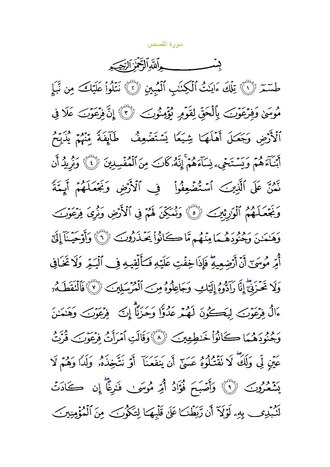 سورة القصص
بِسْمِ اللَّهِ الرَّحْمَٰنِ الرَّحِيمِ
طسٓمٓ ﴿١﴾ تِلْكَ ءَايَٰتُ ٱلْكِتَٰبِ ٱلْمُبِينِ ﴿٢﴾ نَتْلُوا۟ عَلَيْكَ مِن نَّبَإِ
مُوسَىٰ وَفِرْعَوْنَ بِٱلْحَقِّ لِقَوْمٍ يُؤْمِنُونَ ﴿٣﴾ إِنَّ فِرْعَوْنَ عَلَا فِى
ٱلْأَرْضِ وَجَعَلَ أَهْلَهَا شِيَعًا يَسْتَضْعِفُ طَآئِفَةً مِّنْهُمْ يُذَبِّحُ
أَبْنَآءَهُمْ وَيَسْتَحْىِۦ نِسَآءَهُمْ ۚ إِنَّهُۥ كَانَ مِنَ ٱلْمُفْسِدِينَ ﴿٤﴾ وَنُرِيدُ أَن
نَّمُنَّ عَلَى ٱلَّذِينَ ٱسْتُضْعِفُوا۟ فِى ٱلْأَرْضِ وَنَجْعَلَهُمْ أَئِمَّةً
وَنَجْعَلَهُمُ ٱلْوَٰرِثِينَ ﴿٥﴾ وَنُمَكِّنَ لَهُمْ فِى ٱلْأَرْضِ وَنُرِىَ فِرْعَوْنَ
وَهَٰمَٰنَ وَجُنُودَهُمَا مِنْهُم مَّا كَانُوا۟ يَحْذَرُونَ ﴿٦﴾ وَأَوْحَيْنَآ إِلَىٰٓ
أُمِّ مُوسَىٰٓ أَنْ أَرْضِعِيهِ ۖ فَإِذَا خِفْتِ عَلَيْهِ فَأَلْقِيهِ فِى ٱلْيَمِّ وَلَا تَخَافِى
وَلَا تَحْزَنِىٓ ۖ إِنَّا رَآدُّوهُ إِلَيْكِ وَجَاعِلُوهُ مِنَ ٱلْمُرْسَلِينَ ﴿٧﴾ فَٱلْتَقَطَهُۥٓ
ءَالُ فِرْعَوْنَ لِيَكُونَ لَهُمْ عَدُوًّا وَحَزَنًا ۗ إِنَّ فِرْعَوْنَ وَهَٰمَٰنَ
وَجُنُودَهُمَا كَانُوا۟ خَٰطِـِٔينَ ﴿٨﴾ وَقَالَتِ ٱمْرَأَتُ فِرْعَوْنَ قُرَّتُ
عَيْنٍ لِّى وَلَكَ ۖ لَا تَقْتُلُوهُ عَسَىٰٓ أَن يَنفَعَنَآ أَوْ نَتَّخِذَهُۥ وَلَدًا وَهُمْ لَا
يَشْعُرُونَ ﴿٩﴾ وَأَصْبَحَ فُؤَادُ أُمِّ مُوسَىٰ فَٰرِغًا ۖ إِن كَادَتْ
لَتُبْدِى بِهِۦ لَوْلَآ أَن رَّبَطْنَا عَلَىٰ قَلْبِهَا لِتَكُونَ مِنَ ٱلْمُؤْمِنِينَ